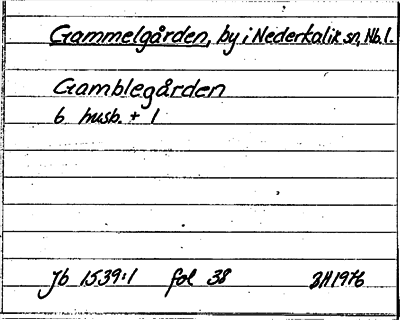 Gammelgården, by i Nederkalix sn, Nb. l.
Gamblegården
6 husb. + 1
Jb 1539:1 fol 38 1976